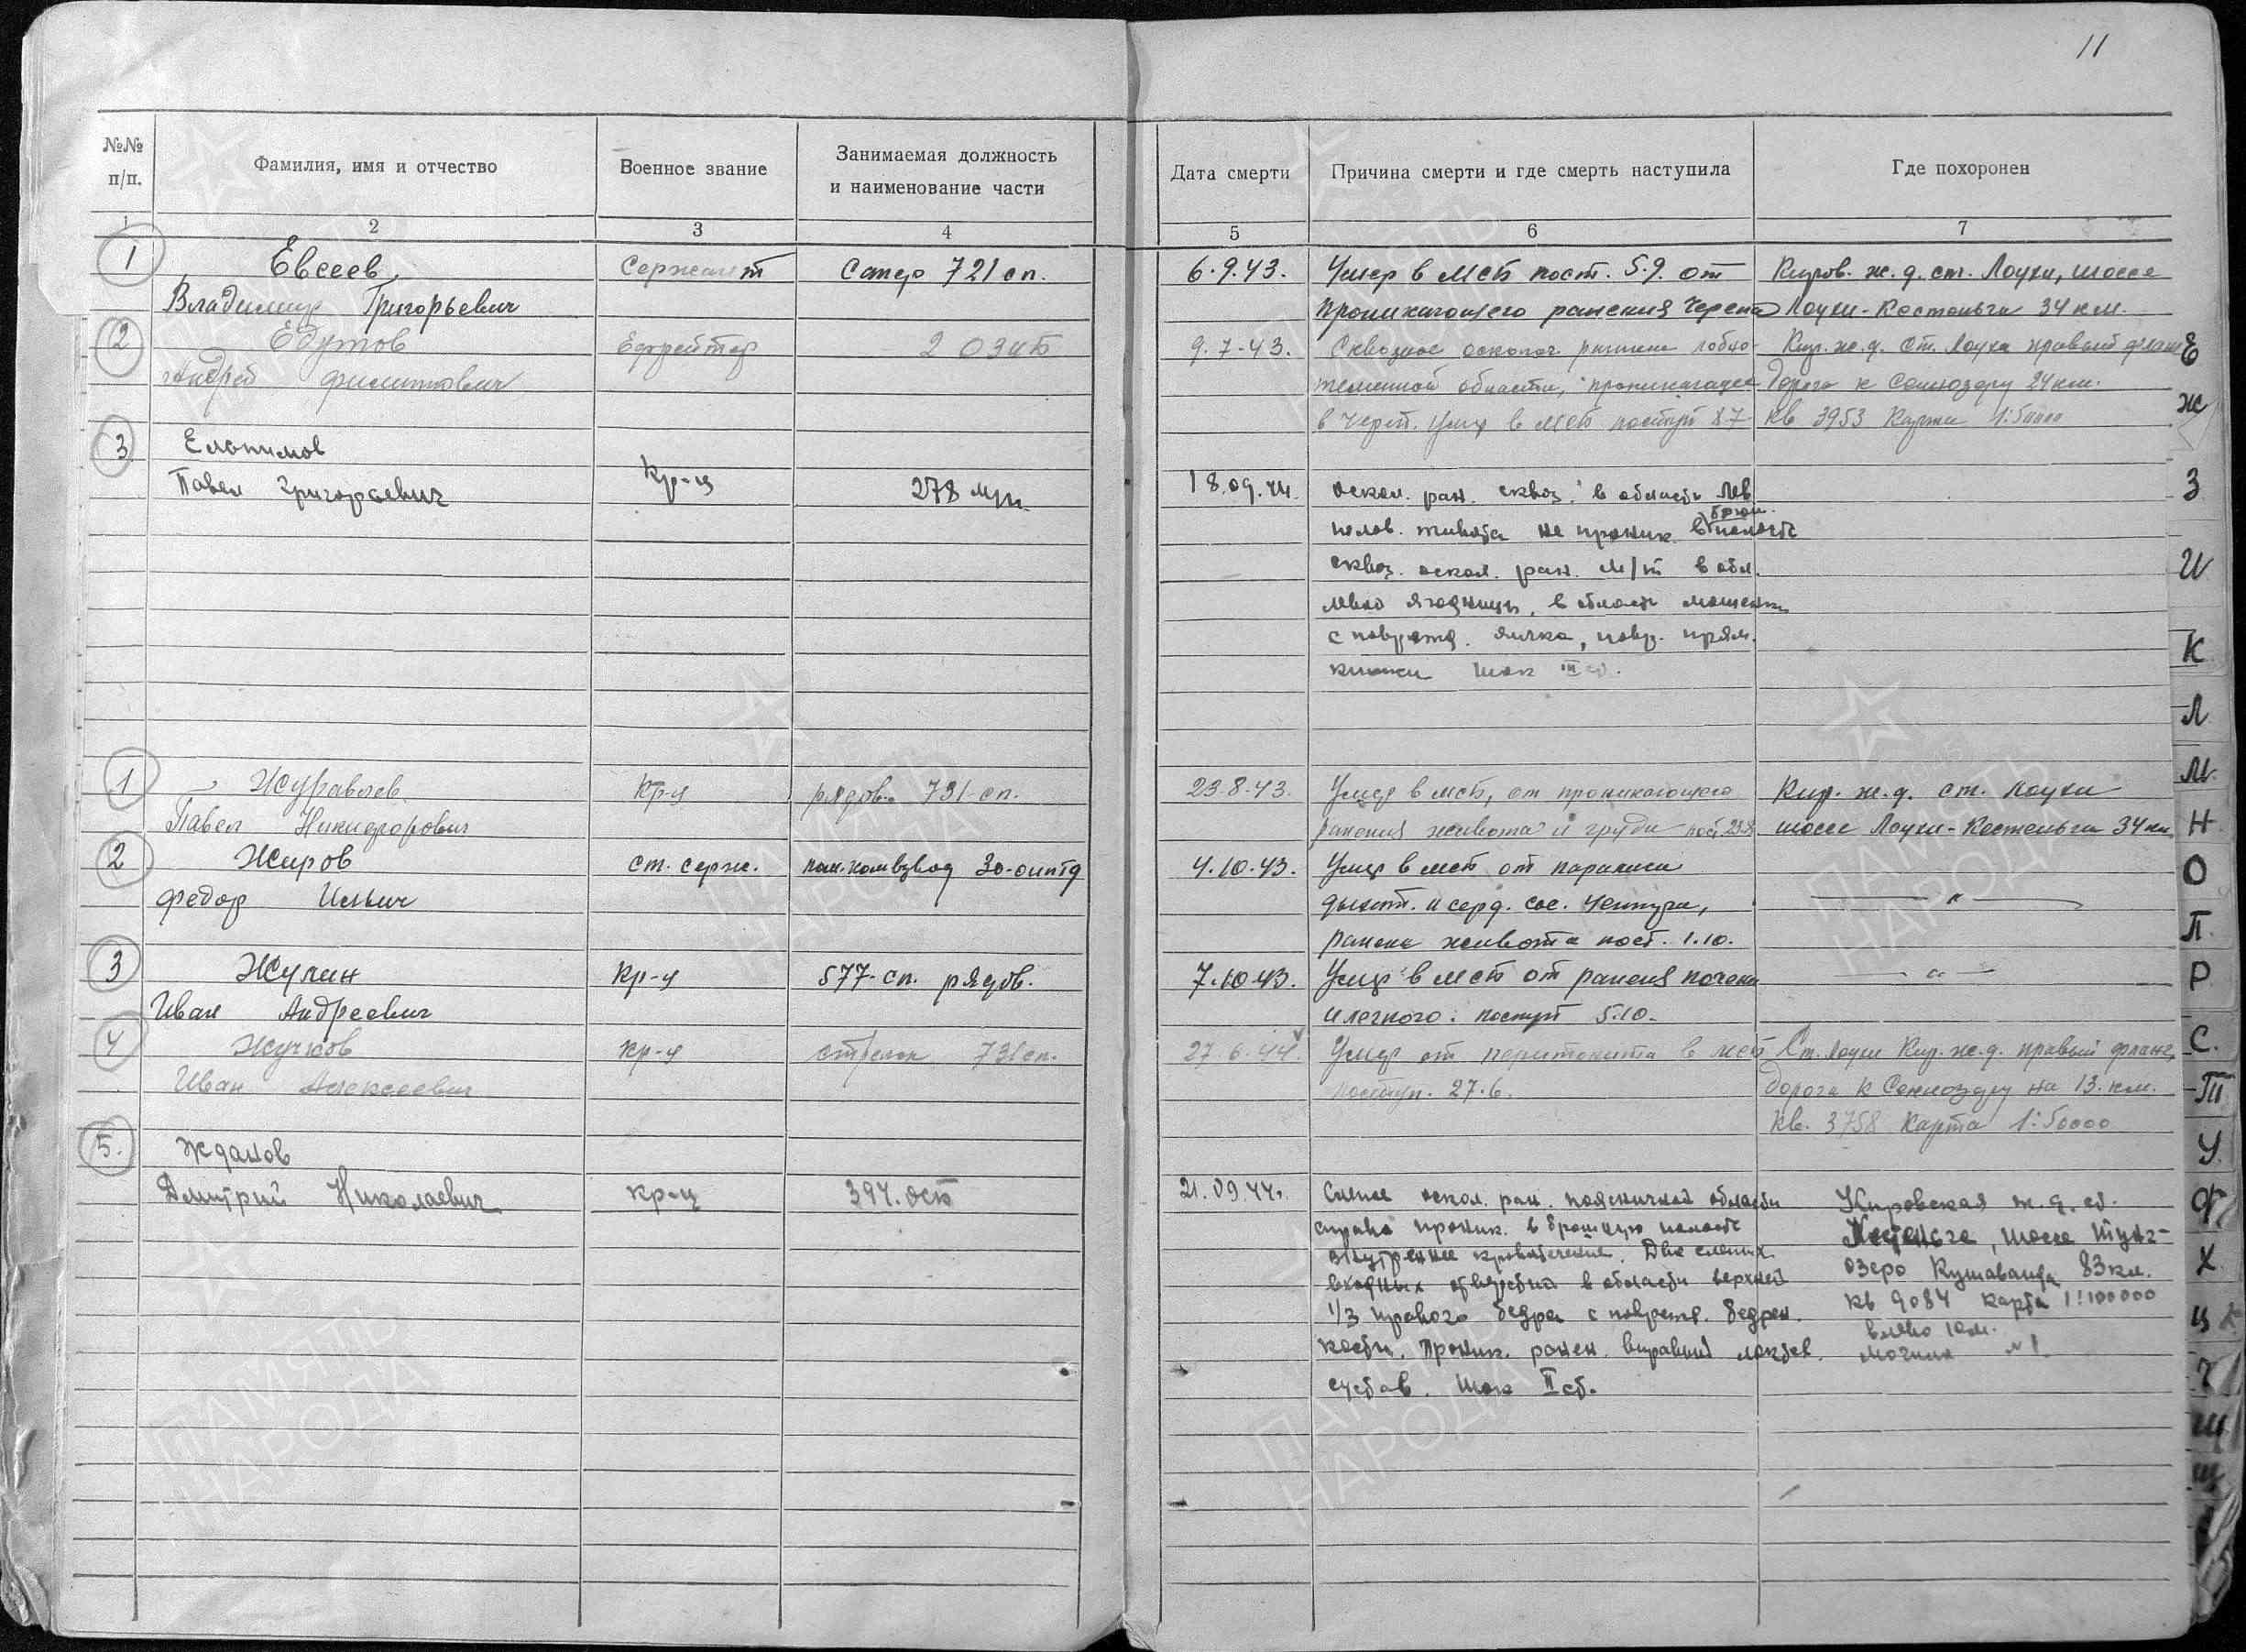 11
№№ п/п.
Фамилия, имя и отчество
Военное звание
Занимаемая должность и наименование части
Дата смерти
Причина смерти и где смерть наступила
Где похоронен
1 2 3 4 5 6 7
1 Евсеев Сержант Сапер 721 сп. 6.9.43. Умер в МСБ пост. 5.9. от Киров. ж.д. ст. Лоухи, шоссе
Владимир Григорьевич проникающего ранения черепа Лоухи-Кестеньга 34 км.
2 Ефрейтор 2 9.7-43. Сквозное оскол. ранение лобно- Кир. ж.д. ст. Лоухи правый фланг
Андрей теменной области, проникающее дорога к Сенюозеру 24 км.
в череп. Умер в МСБ поступ 8.7- кв 3953 Карта 1:50000
3 Елопимов
Павел Григорьевич Кр-ц 278 18.09.44. оскол. ран. сквоз. в области лев.
полов. живота не проник. в брюш. полость
сквоз. оскол. ран. м/т в обл.
левой ягодицы, в области мошонки
с поврежд. яичка, повр. прям.
кишки шок III ст.
1 Журавлев Кр-ц рядов. 731-сп. 23.8.43. Умер в МСБ, от проникающего Кир. ж.д. ст. Лоухи
Павел Никифорович ранения живота и груди пост. 23.8 шоссе Лоухи-Кестеньга 34 км
2 Жиров ст. серж. пом. ком взвод 30-оиптд 4.10.43. Умер в МСБ от паралича
Федор Ильич дыхат. и серд. — " —
ранение живота пост. 1.10.
3 Жулин Кр-ц 577-сп. рядов. 7.10.43. Умер в МСБ от ранения печени — " —
Иван Андреевич и легкого. поступ 5.10.
4 Жучков Кр-ц стрелок 731 сп. 27.6.44. Умер от перитонита в МСБ Ст. Лоухи Кир. ж.д. правый фланг,
Иван Алексеевич поступ. 27.6. дорога к Сенюозеру на 13. км.
кв. 3758 Карта 1:50000
5. Жданов
Дмитрий Николаевич кр-ц 394. 21.09.44. Слепое оскол. ран. поясничной области Кировская ж.д. ст.
справа проник. в брюшную полость Кестеньга, шоссе
внутреннее кровотечение. Два слепых озеро 83 км.
входных отверстия в области верхней кв 9084 карта 1:100000
1/3 правого бедра с поврежд. бедрен. влево 10 м.
кости. Проник. ранен. в правый локтев. могила №1.
сустав. Шок II ст.
Е
Ж
З
И
К
Л
М
Н
О
П
Р
С
Т
У
Ф
Х
Ц
Ч
Ш
Щ
ПАМЯТЬ НАРОДА